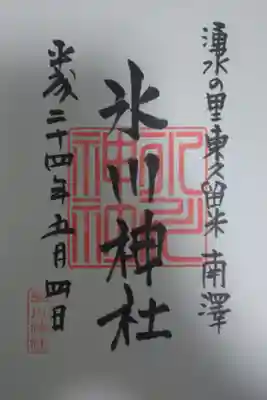 湧水の里東久留米 南澤
氷川神社
平成二十四年五月四日
氷川神社